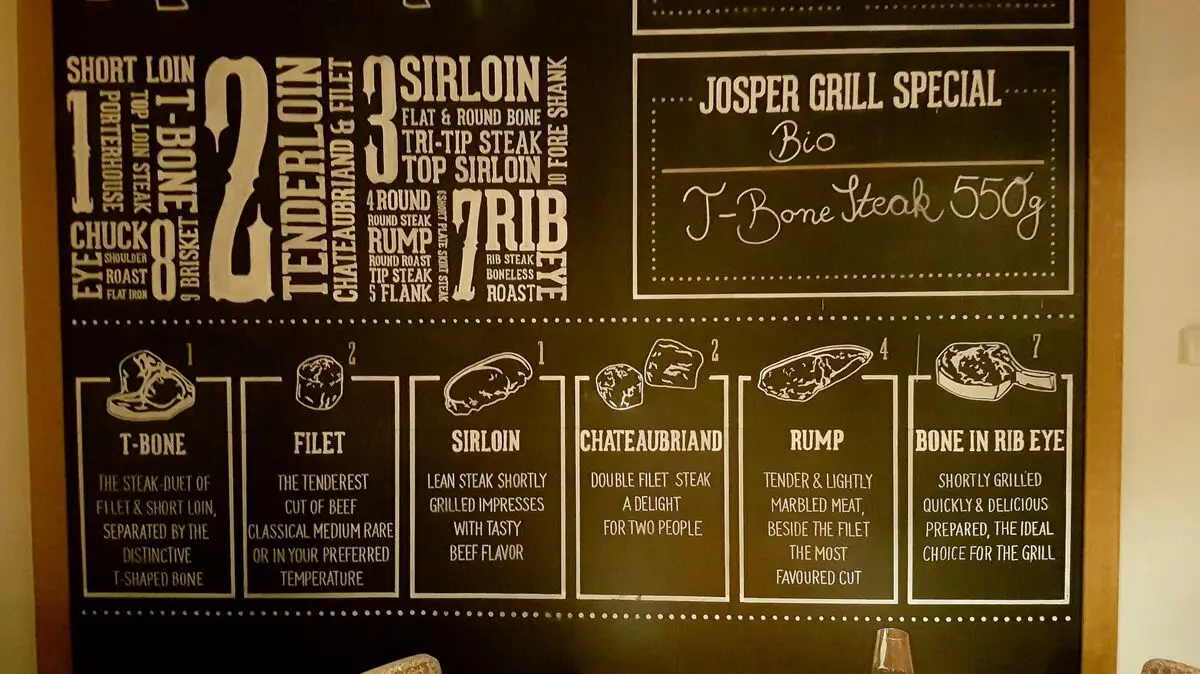 SHORT LOIN
1
PORTERHOUSE
TOP LOIN STEAK
T-BONE
CHUCK
EYE
SHOULDER
ROAST
FLAT IRON
8
9 BRISKET
2
TENDERLOIN
CHATEAUBRIAND & FILET
3
SIRLOIN
FLAT & ROUND BONE
TRI-TIP STEAK
TOP SIRLOIN
10 FORE SHANK
4 ROUND
ROUND STEAK
RUMP
ROUND ROAST
TIP STEAK
5 FLANK
6 SHORT PLATE SKIRT STEAK
7
RIB
EYE
RIB STEAK
BONELESS
ROAST
JOSPER GRILL SPECIAL
Bio
T-Bone Steak 550g
1
T-BONE
THE STEAK-DUET OF
FILET & SHORT LOIN,
SEPARATED BY THE
DISTINCTIVE
T-SHAPED BONE
2
FILET
THE TENDEREST
CUT OF BEEF
CLASSICAL MEDIUM RARE
OR IN YOUR PREFERRED
TEMPERATURE
1
SIRLOIN
LEAN STEAK SHORTLY
GRILLED IMPRESSES
WITH TASTY
BEEF FLAVOR
2
CHATEAUBRIAND
DOUBLE FILET STEAK
A DELIGHT
FOR TWO PEOPLE
4
RUMP
TENDER & LIGHTLY
MARBLED MEAT,
BESIDE THE FILET
THE MOST
FAVOURED CUT
7
BONE IN RIB EYE
SHORTLY GRILLED
QUICKLY & DELICIOUS
PREPARED, THE IDEAL
CHOICE FOR THE GRILL